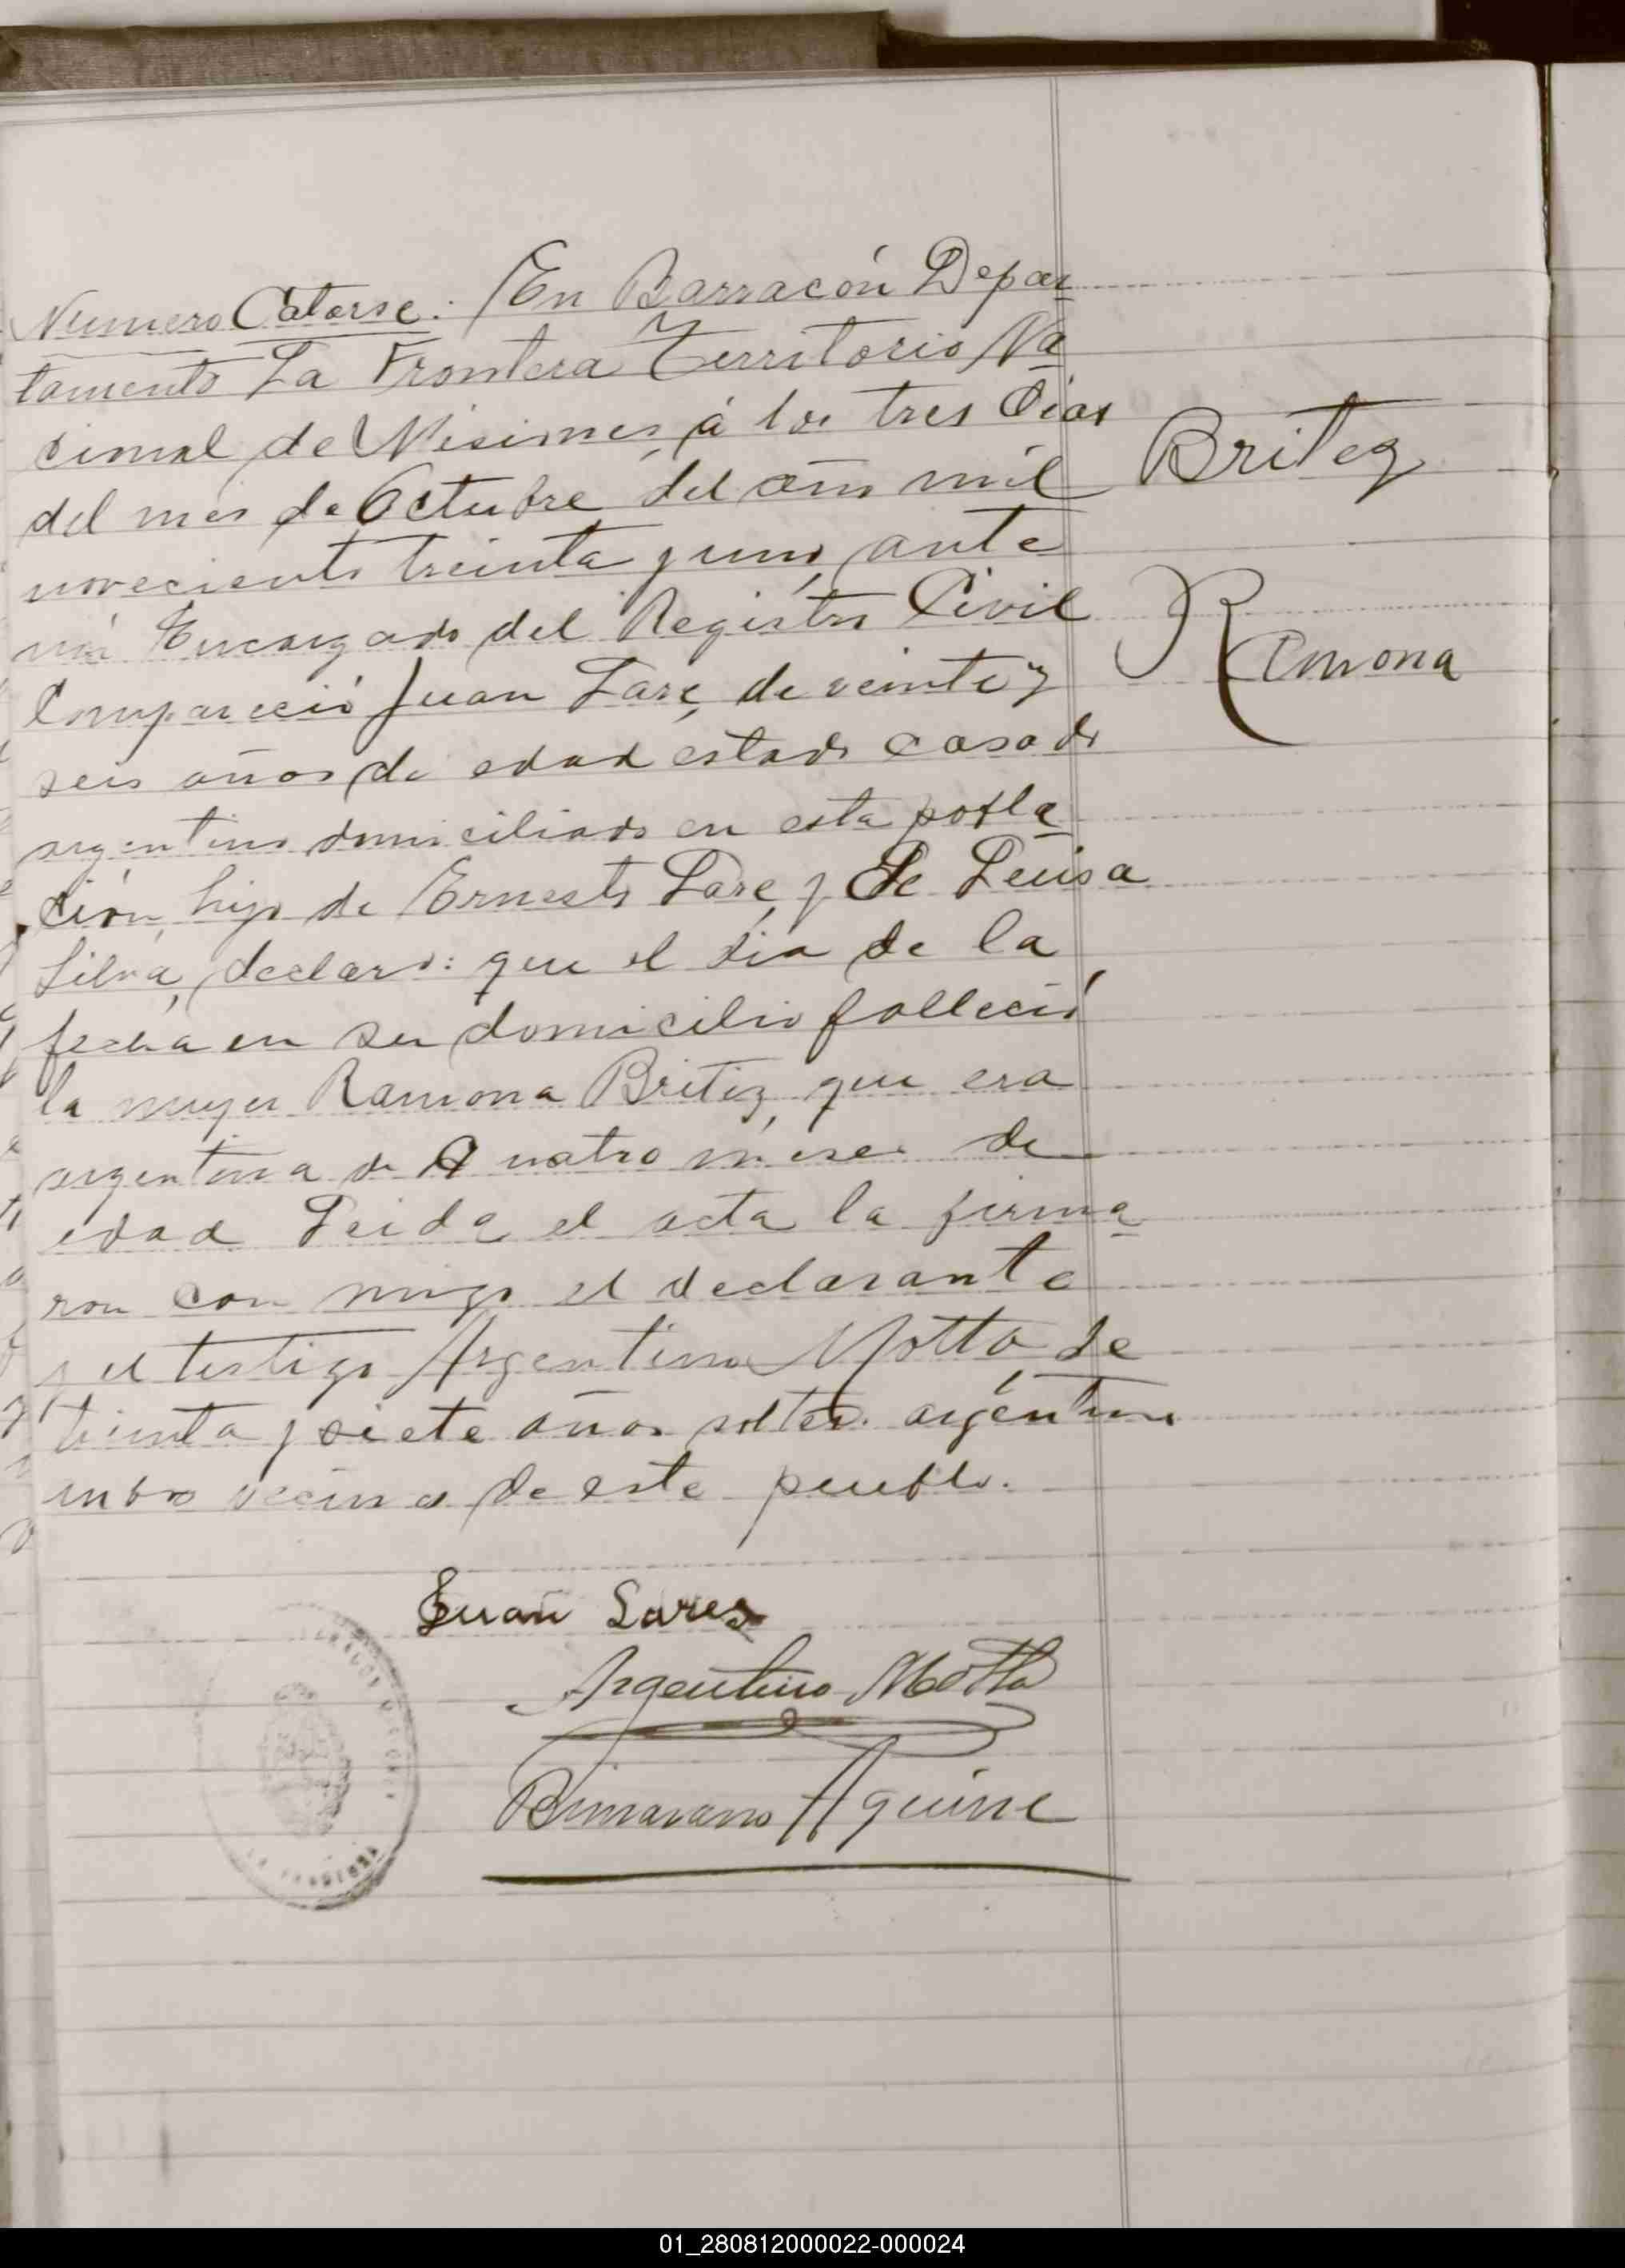 Numero Catorse: En Barracón Depar
tamento La Frontera Territorio Na
cional de Misiones, á los tres dias
del mes de Octubre del año mil
novecients treinta y uno, ante
mí Encargado del Registro Civil
Compareció Juan Lare, de veinte y
seis años de edad estado casado
argentino domiciliado en esta pobla
ción, hijo de Ernesto Lare, y de Luisa
Silva, declaro: que el dia de la
fecha en su domicilio falleció
la mujer Ramona Britez, que era
argentina de cuatro meses de
edad Leida el acta la firma
ron con migo el declarante
y el testigo Argentino Motta, de
treinta y siete años soltero argentino
ambos vecinos de este pueblo.
Britez
Ramona
Juan Lares
Argentino Motta
Aguirre
01_280812000022-000024